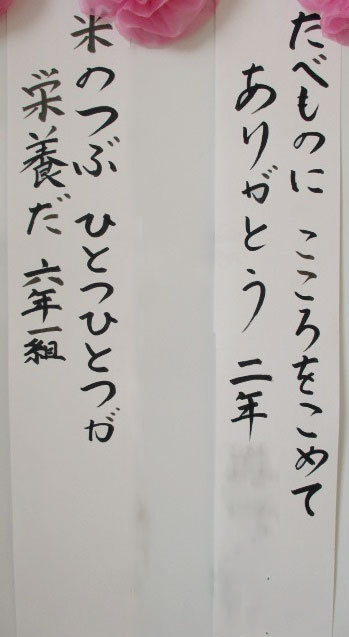 たべものに こころをこめて
ありがとう 二年
米のつぶ ひとつひとつが
栄養だ 六年一組